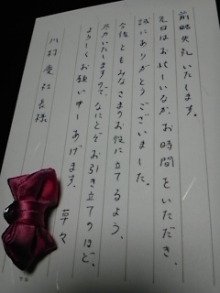 前略失礼いたします。
先日はお忙しいなか、お時間をいただき、
誠にありがとうございました。
今後ともみなさまのお役に立てるよう、
努力いたしますので、なにとぞお引き立てのほど、
よろしくお願い申しあげます。
草々
様